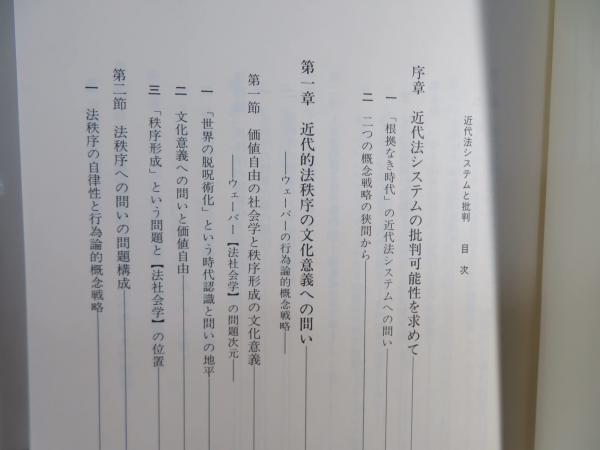 近代法システムと批判 目次
序章 近代法システムの批判可能性を求めて
一 「根拠なき時代」の近代法システムへの問い
二 二つの概念戦略の狭間から
第一章 近代的法秩序の文化意義への問い
——ウェーバーの行為論的概念戦略——
第一節 価値自由の社会学と秩序形成の文化意義
——ウェーバー【法社会学】の問題次元——
一 「世界の脱呪術化」という時代認識と問いの地平
二 文化意義への問いと価値自由
三 「秩序形成」という問題と【法社会学】の位置
第二節 法秩序への問いの問題構成
一 法秩序の自律性と行為論的概念戦略